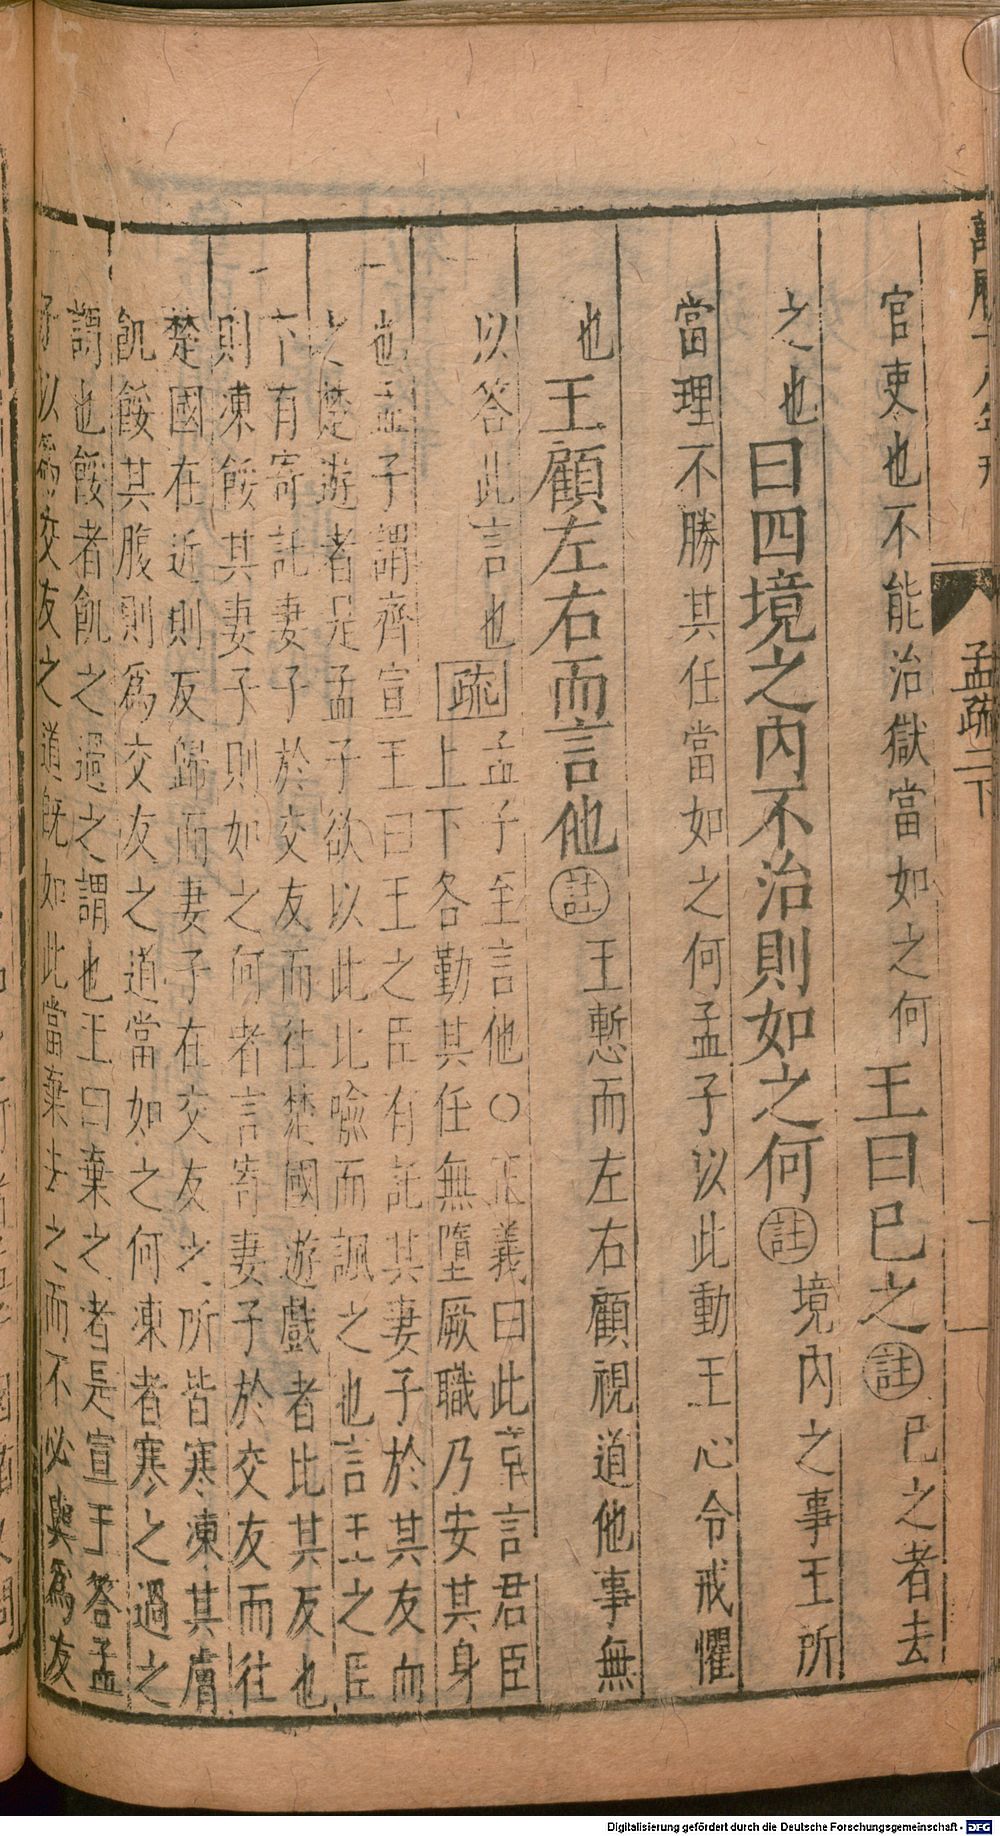 萬曆十八年刊
孟疏二下
官吏也不能治獄當如之何王曰巳之註巳之者去
之也曰四境之內不治則如之何註境內之事王所
當理不勝其任當如之何孟子以此動王心令戒懼
也王顧左右而言他註王慙而左右顧視道他事無
以答此言也疏孟子至言他○正義曰此章言君臣
上下各勤其任無墮厥職乃安其身
也孟子謂齊宣王曰王之臣有託其妻子於其友而
之楚遊者是孟子欲以此比喻而諷之也言王之臣
下有寄託妻子於交友而往楚國遊戲者比其反也
則凍餒其妻子則如之何者言寄妻子於交友而往
楚國在近則反歸而妻子在交友之所皆寒凍其膚
飢餒其腹則爲交友之道當如之何凍者寒之過之
謂也餒者飢之過之謂也王曰棄之者是宣王答孟
子以爲交友之道旣如此當棄去之而不必與爲友
Digitalisierung gefördert durch die Deutsche Forschungsgemeinschaft - DFG